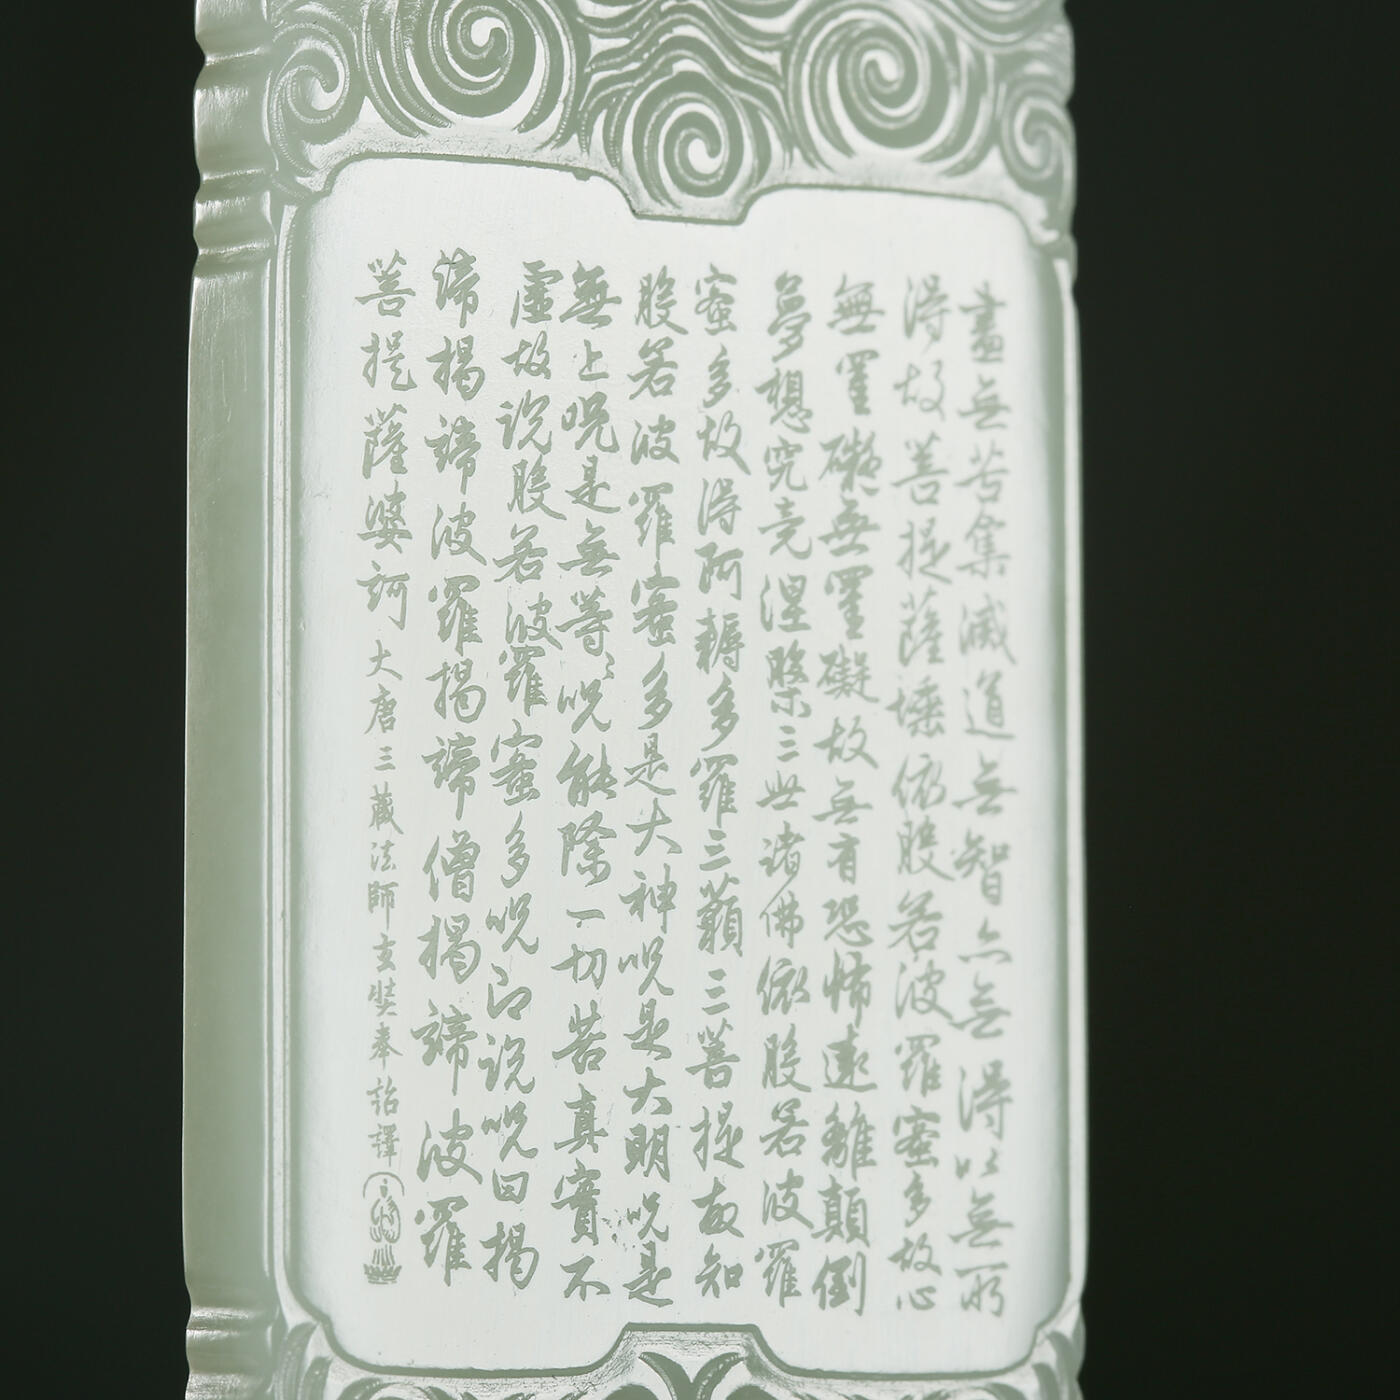 盡無苦集滅道無智亦無得以無所
得故菩提薩埵依般若波羅蜜多故心
無罣礙無罣礙故無有恐怖遠離顛倒
夢想究竟涅槃三世諸佛依般若波羅
蜜多故得阿耨多羅三藐三菩提故知
般若波羅蜜多是大神呪是大明呪是
無上呪是無等々呪能除一切苦真實不
虛故説般若波羅蜜多呪即説呪曰揭
諦揭諦波羅揭諦僧揭諦波羅
菩提薩婆訶 大唐三藏法師玄奘奉詔譯